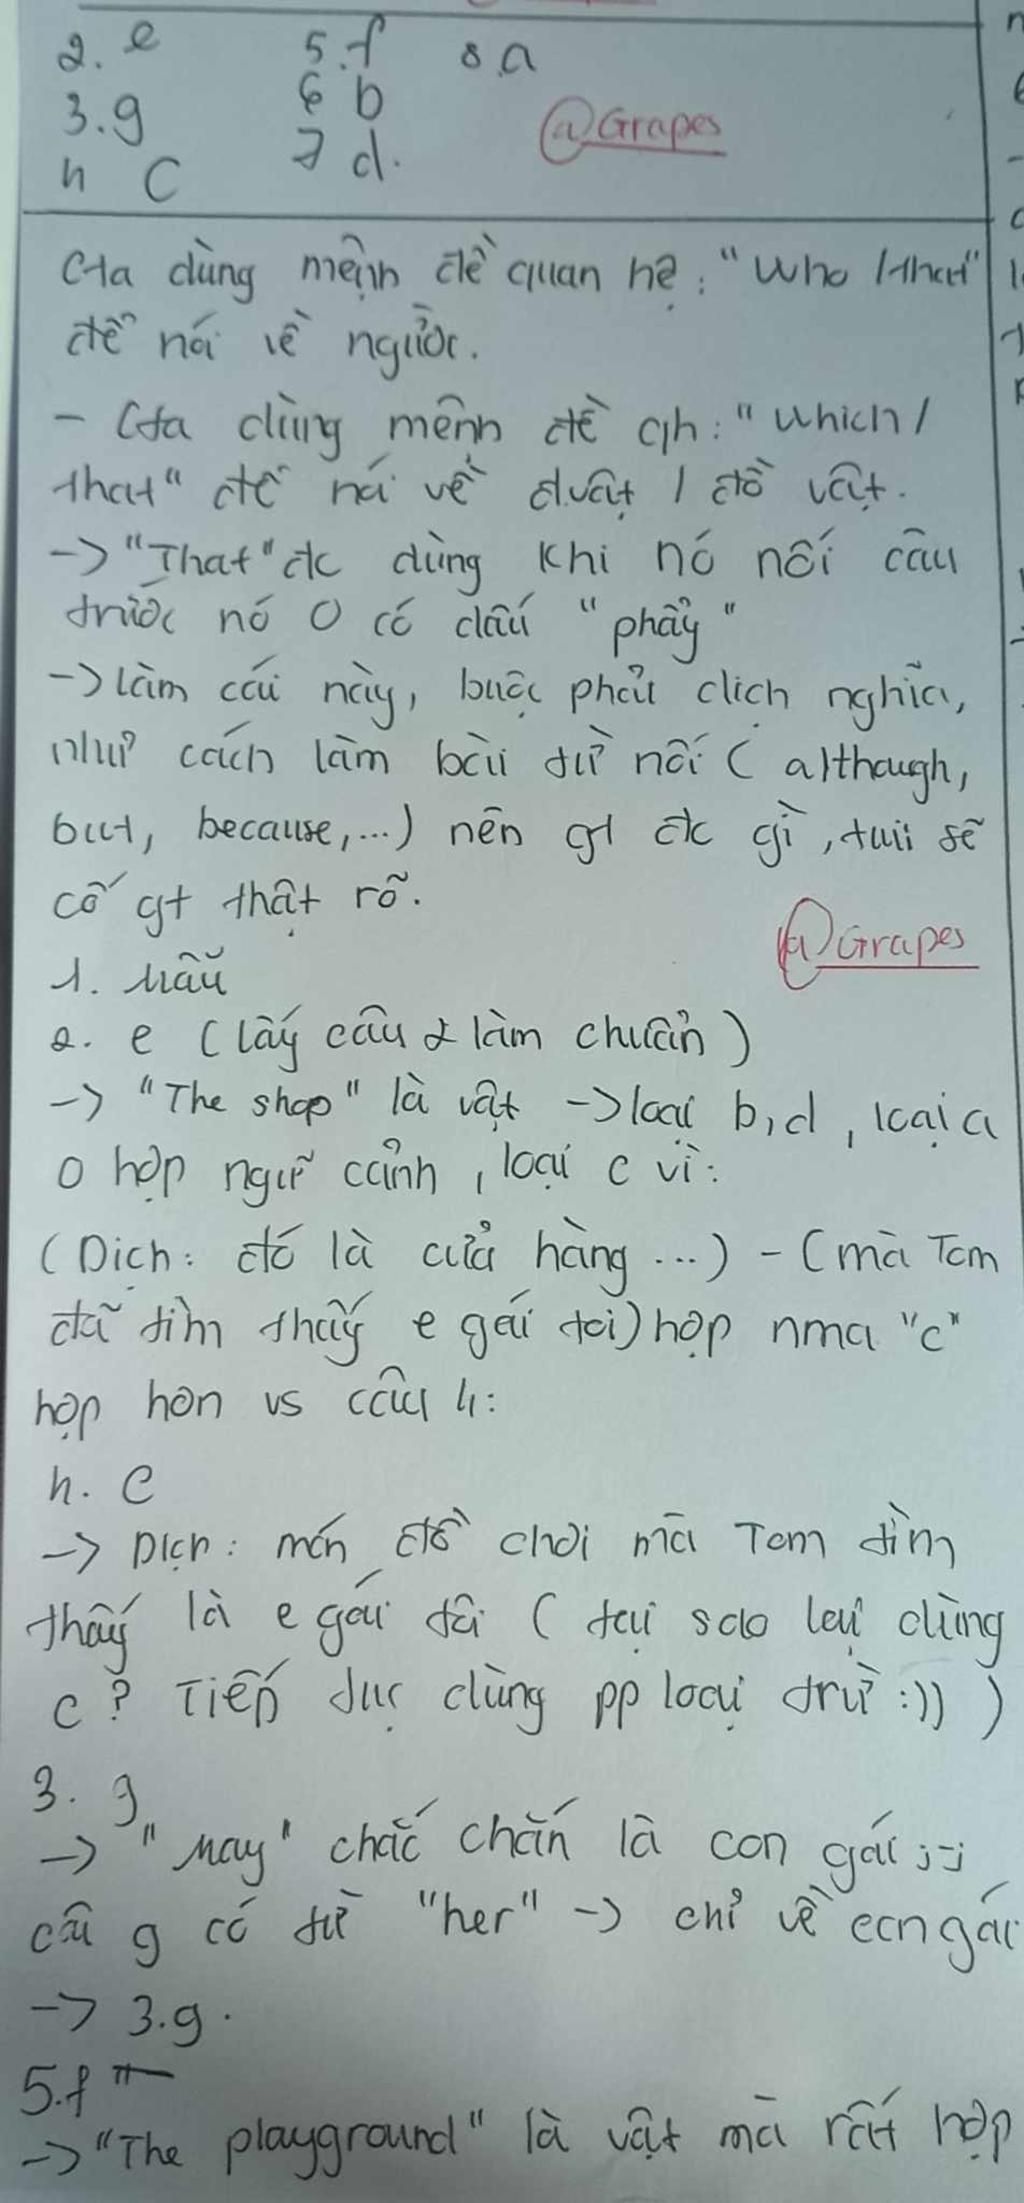 2. e 5. f 8. a
3. g 6 b
@Grapes
4 c 7 d.
Cta dùng mệnh đề quan hệ: "Who / that"
để nói về người.
- Cta dùng mệnh đề qh: "Which /
that" để nói về đ.vật / đồ vật.
-> "That" đc dùng khi nó nối câu
trước nó 0 có dấu "phẩy"
-> Làm cái này, buộc phải dịch nghĩa,
như cách làm bài từ nối ( although,
but, because, ...) nên gt đc gì, tuii sẽ
cố gt thật rõ.
@Grapes
1. Mẫu
2. e ( lấy câu 2 làm chuẩn )
-> "The shop" là vật -> loại b, d, loại a
0 hợp ngữ cảnh, loại c vì:
(Dịch: đó là cửa hàng ...) - (mà Tom
đã tìm thấy e gái tôi) hợp nma "c"
hợp hơn vs câu 4:
4. c
-> Dịch: món đồ chơi mà Tom tìm
thấy là e gái tôi ( tại sao lại dùng
c ? Tiếp tục dùng pp loại trừ :)) )
3. g
-> "May" chắc chắn là con gái ;-;
câu g có từ "her" -> chỉ về con gái
-> 3.g.
5.f
-> "The playground" là vật mà rất hợp